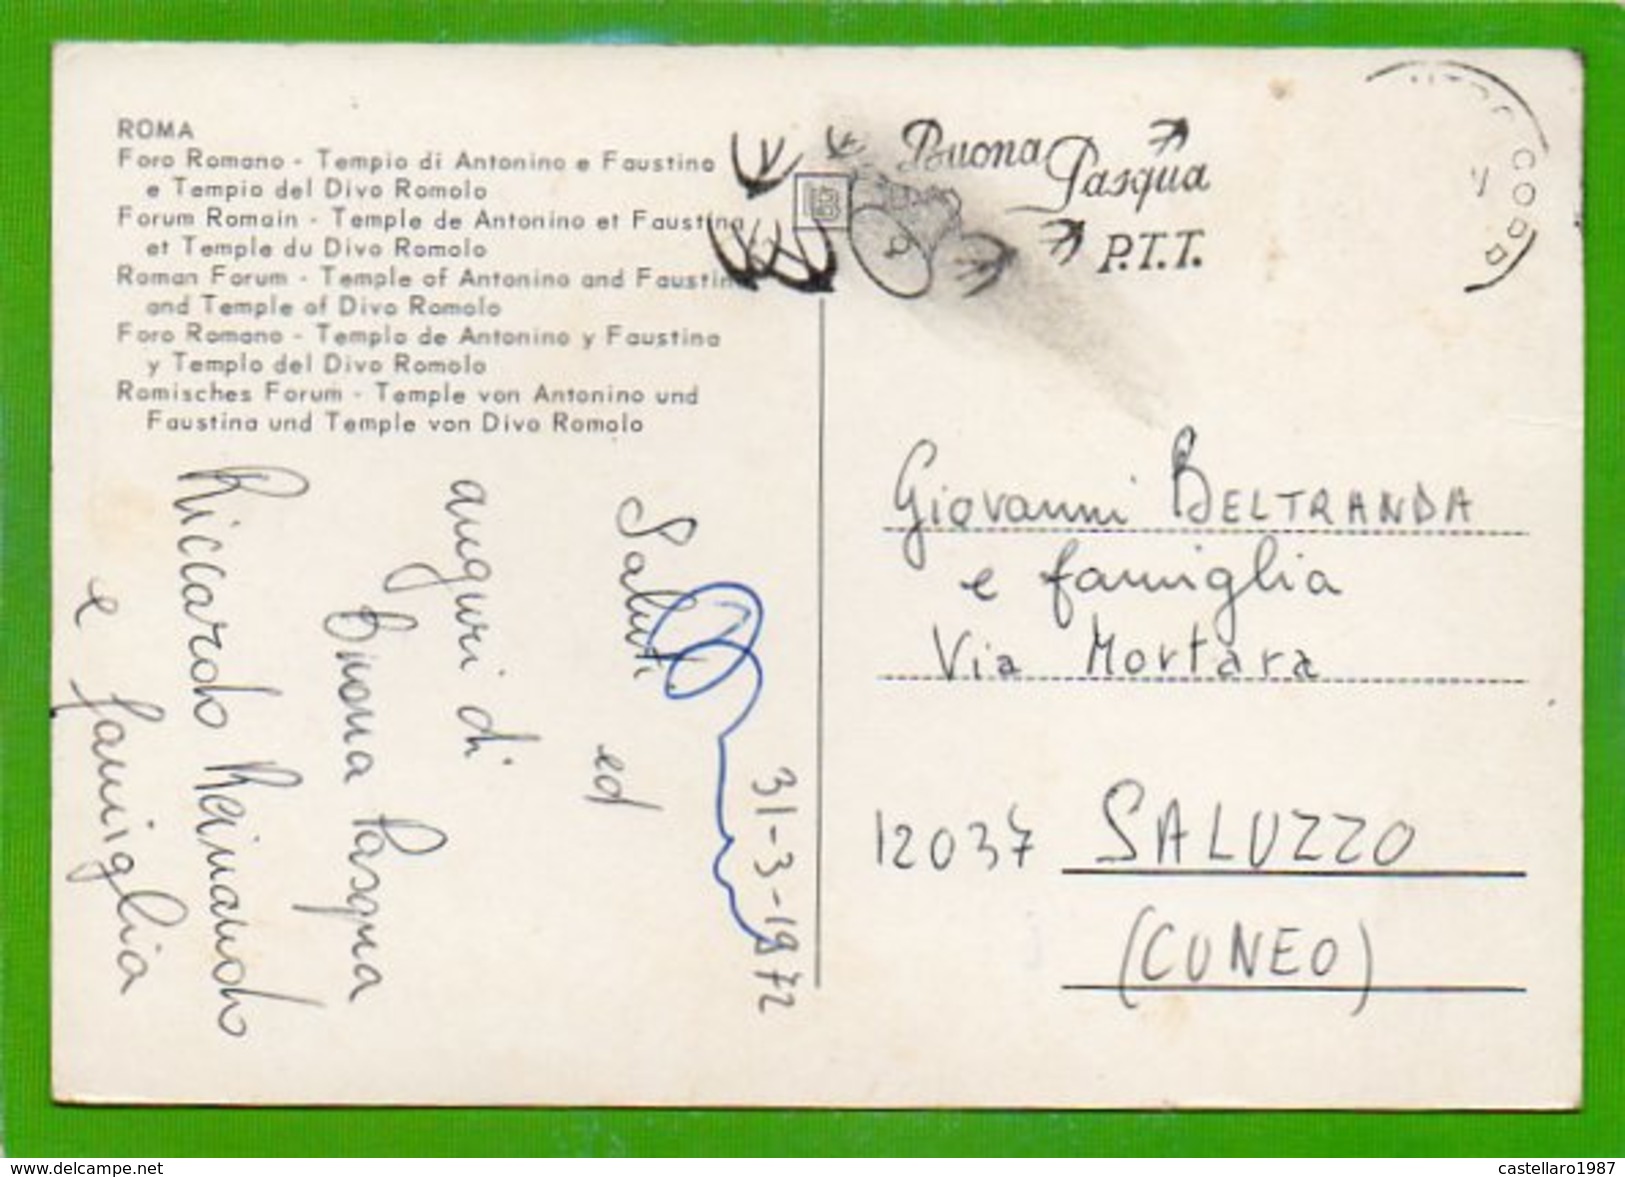 ROMA
Foro Romano - Tempio di Antonino e Faustina
e Tempio del Divo Romolo
Forum Romain - Temple de Antonino et Faustina
et Temple du Divo Romolo
Roman Forum - Temple of Antonino and Faustina
and Temple of Divo Romolo
Foro Romano - Templo de Antonino y Faustina
y Templo del Divo Romolo
Romisches Forum - Temple von Antonino und
Faustina und Temple von Divo Romolo
Buona
Pasqua
P.T.T.
31-3-1972
Saluti ed
auguri di
buona Pasqua
Riccardo Reinaudo
e famiglia
Giovanni BELTRANDA
e famiglia
Via Mortara
12037 SALUZZO
(CUNEO)
www.delcampe.net
castellaro1987